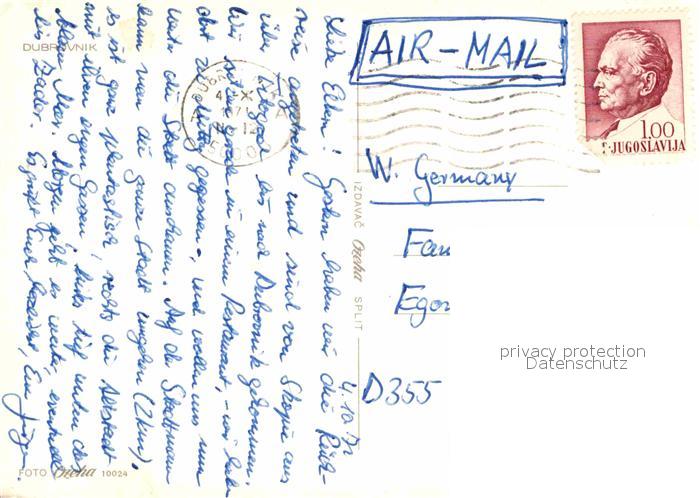 DUBROVNIK
AIR-MAIL
1.00
JUGOSLAVIJA
W. Germany
Fam
Egon
D355
privacy protection
Datenschutz
IZDAVAČ Oreha SPLIT
4.10.
Liebe Eltern! Gestern haben wir die Rück-
reise angetreten und sind von Skopje aus
über Titograd bis nach Dubrovnik gekommen.
Wir sitzen gerade in einem Restaurant, - wir haben
dort zu Mittag gegessen -, und wollen uns nun
weiter die Stadt anschauen. Auf der Stadtmauer
kann man die ganze Stadt umgehen (2km).
Es ist ganz phantastisch, rechts die Altstadt
mit ihren engen Gassen, links tief unten das
Meer. Morgen geht es weiter, eventuell
bis Zadar. Es grüßt Euch herzlichst, Eur Jürgen
FOTO Oreha 10024